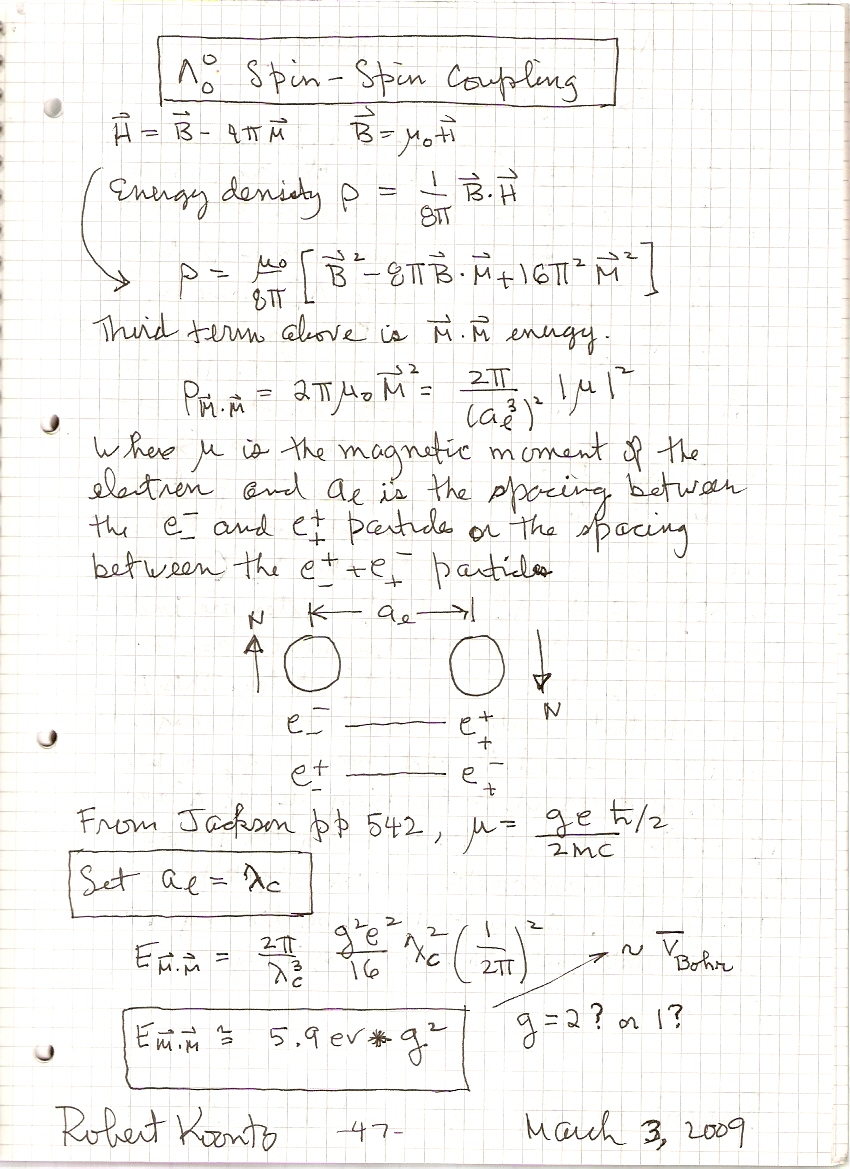 Λ⁰₀ Spin-Spin Coupling
H⃗ = B⃗ - 4πM⃗   B⃗ = μ₀H⃗
Energy density ρ = 1/8π B⃗·H⃗
ρ = μ₀/8π [B⃗² - 8πB⃗·M⃗ + 16π²M⃗²]
Third term above is M⃗·M⃗ energy.
ρ_M⃗·M⃗ = 2πμ₀M⃗² = 2π/(aₑ³)² |μ|²
Where μ is the magnetic moment of the
electron and aₑ is the spacing between
the e⁻₋ and e⁺₊ particle or the spacing
between the e⁺₋ + e⁻₊ particles
N |← aₑ →|
N
e⁻₋ —— e⁺₊
e⁺₋ —— e⁻₊
From Jackson pp 542, μ = geħ/2 / 2mc
Set aₑ = λc
E_M⃗·M⃗ = 2π/λc³ g²e²/16 λc² (1/2π)² ~ V̄_Bohr
E_M⃗·M⃗ ≅ 5.9 ev * g² g = 2? or 1?
Robert Koontz -47- March 3, 2009